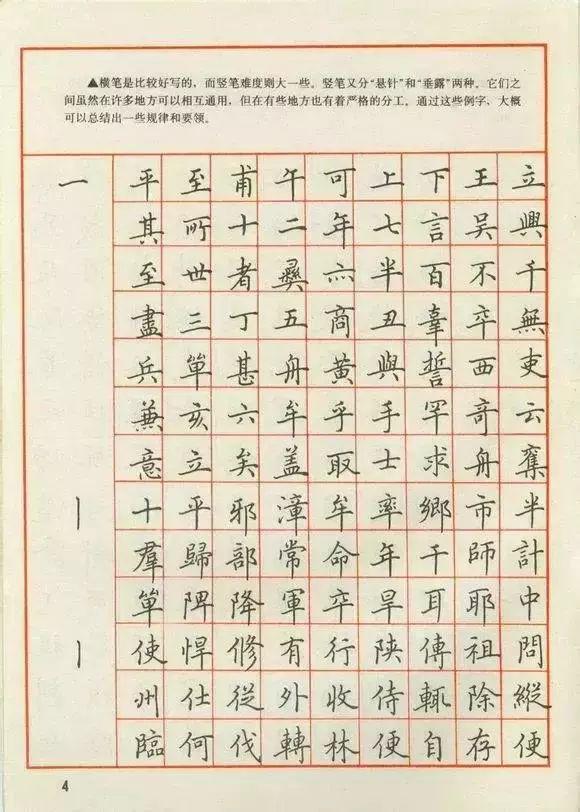 ▲横笔是比较好写的，而竖笔难度则大一些。竖笔又分“悬针”和“垂露”两种。它们之
间虽然在许多地方可以相互通用，但在有些地方也有着严格的分工。通过这些例字，大概
可以总结出一些规律和要领。
一 平 至 甫 午 可 上 下 王 立
其 所 十 二 年 七 言 吴 興
至 世 者 彝 六 半 百 不 千
盡 三 丁 五 商 丑 辜 卒 無
兵 單 甚 舟 黄 與 誓 西 吏
兼 亥 六 牟 乎 手 罕 奇 云
意 立 矣 盖 取 士 求 舟 奪
丨 十 平 邪 漳 牟 率 鄉 市 半
羣 歸 部 常 命 年 干 師 計
單 陴 降 軍 卒 旱 耳 耶 中
丨 使 悍 修 有 行 陕 傳 祖 問
州 仕 從 外 收 侍 輒 除 縱
臨 何 伐 轉 林 便 自 存 便
4